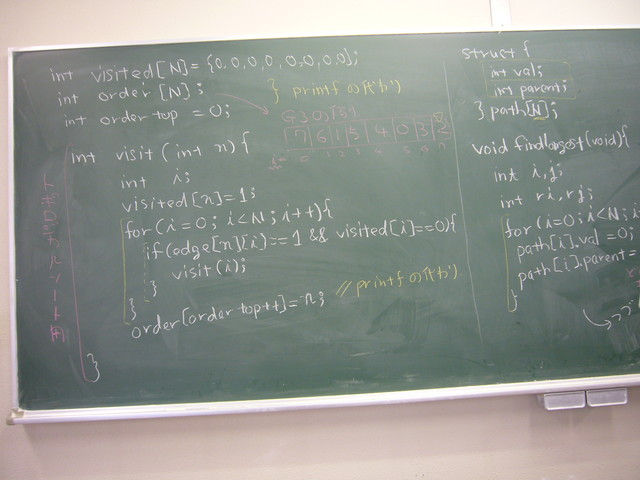 int visited[N] = {0,0,0,0,0,0,0,0};
int order[N];
int order-top = 0;
} printfの代わり
G3の例
7 6 1 5 4 0 3 2
0 1 2 3 4 5 6 7
トポロジカルソート用
int visit(int n){
int i;
visited[n]=1;
for(i=0; i<N; i++){
if(edge[n][i]==1 && visited[i]==0){
visit(i);
}
}
order[order-top++]=n; //printfの代わり
}
struct {
int val;
int parent;
} path[N];
void findlongest(void){
int i,j;
int ri,rj;
for(i=0; i<N; i
path[i].val=0;
path[i].parent=
}